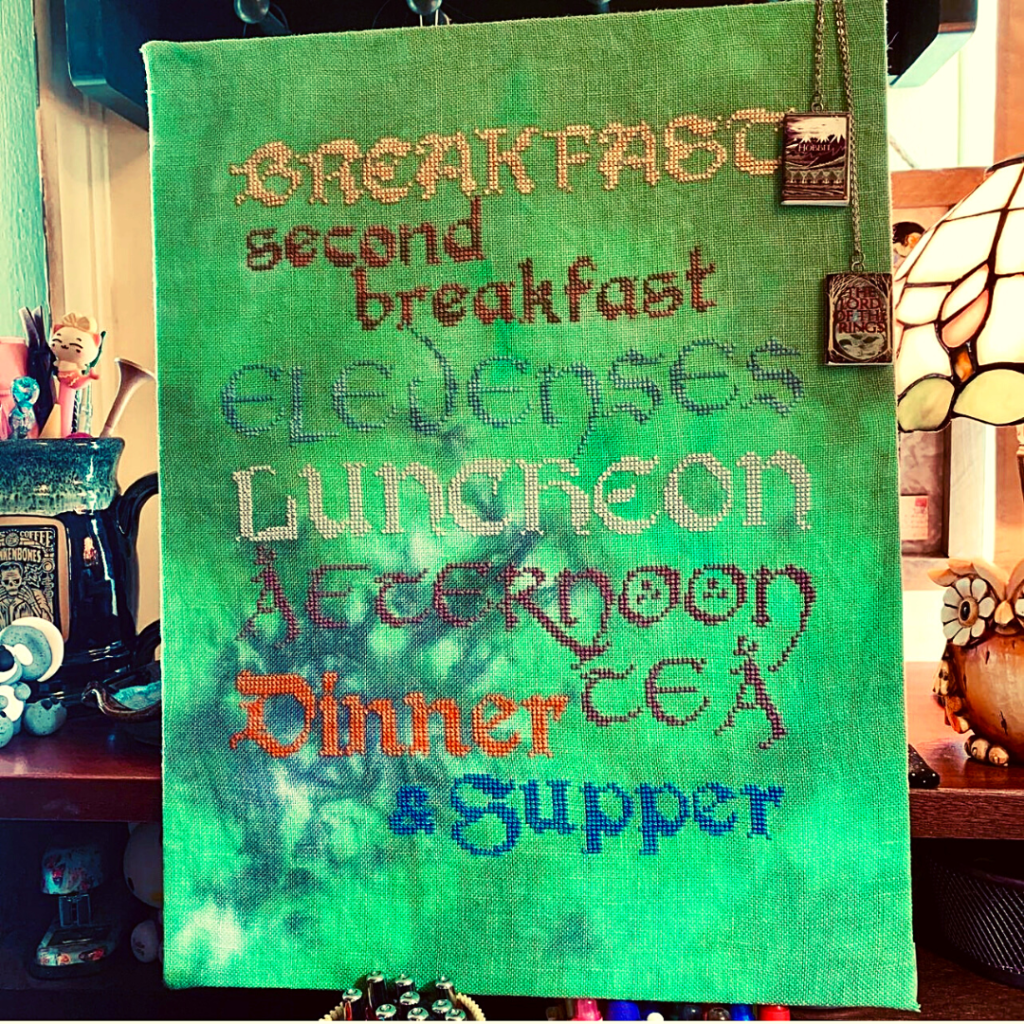 BREAKFAST
second
breakfast
ELEVENSES
LUNCHEON
AFTERNOON
TEA
Dinner
& Supper
THE
HOBBIT
THE
LORD
OF THE
RINGS
COFFEE